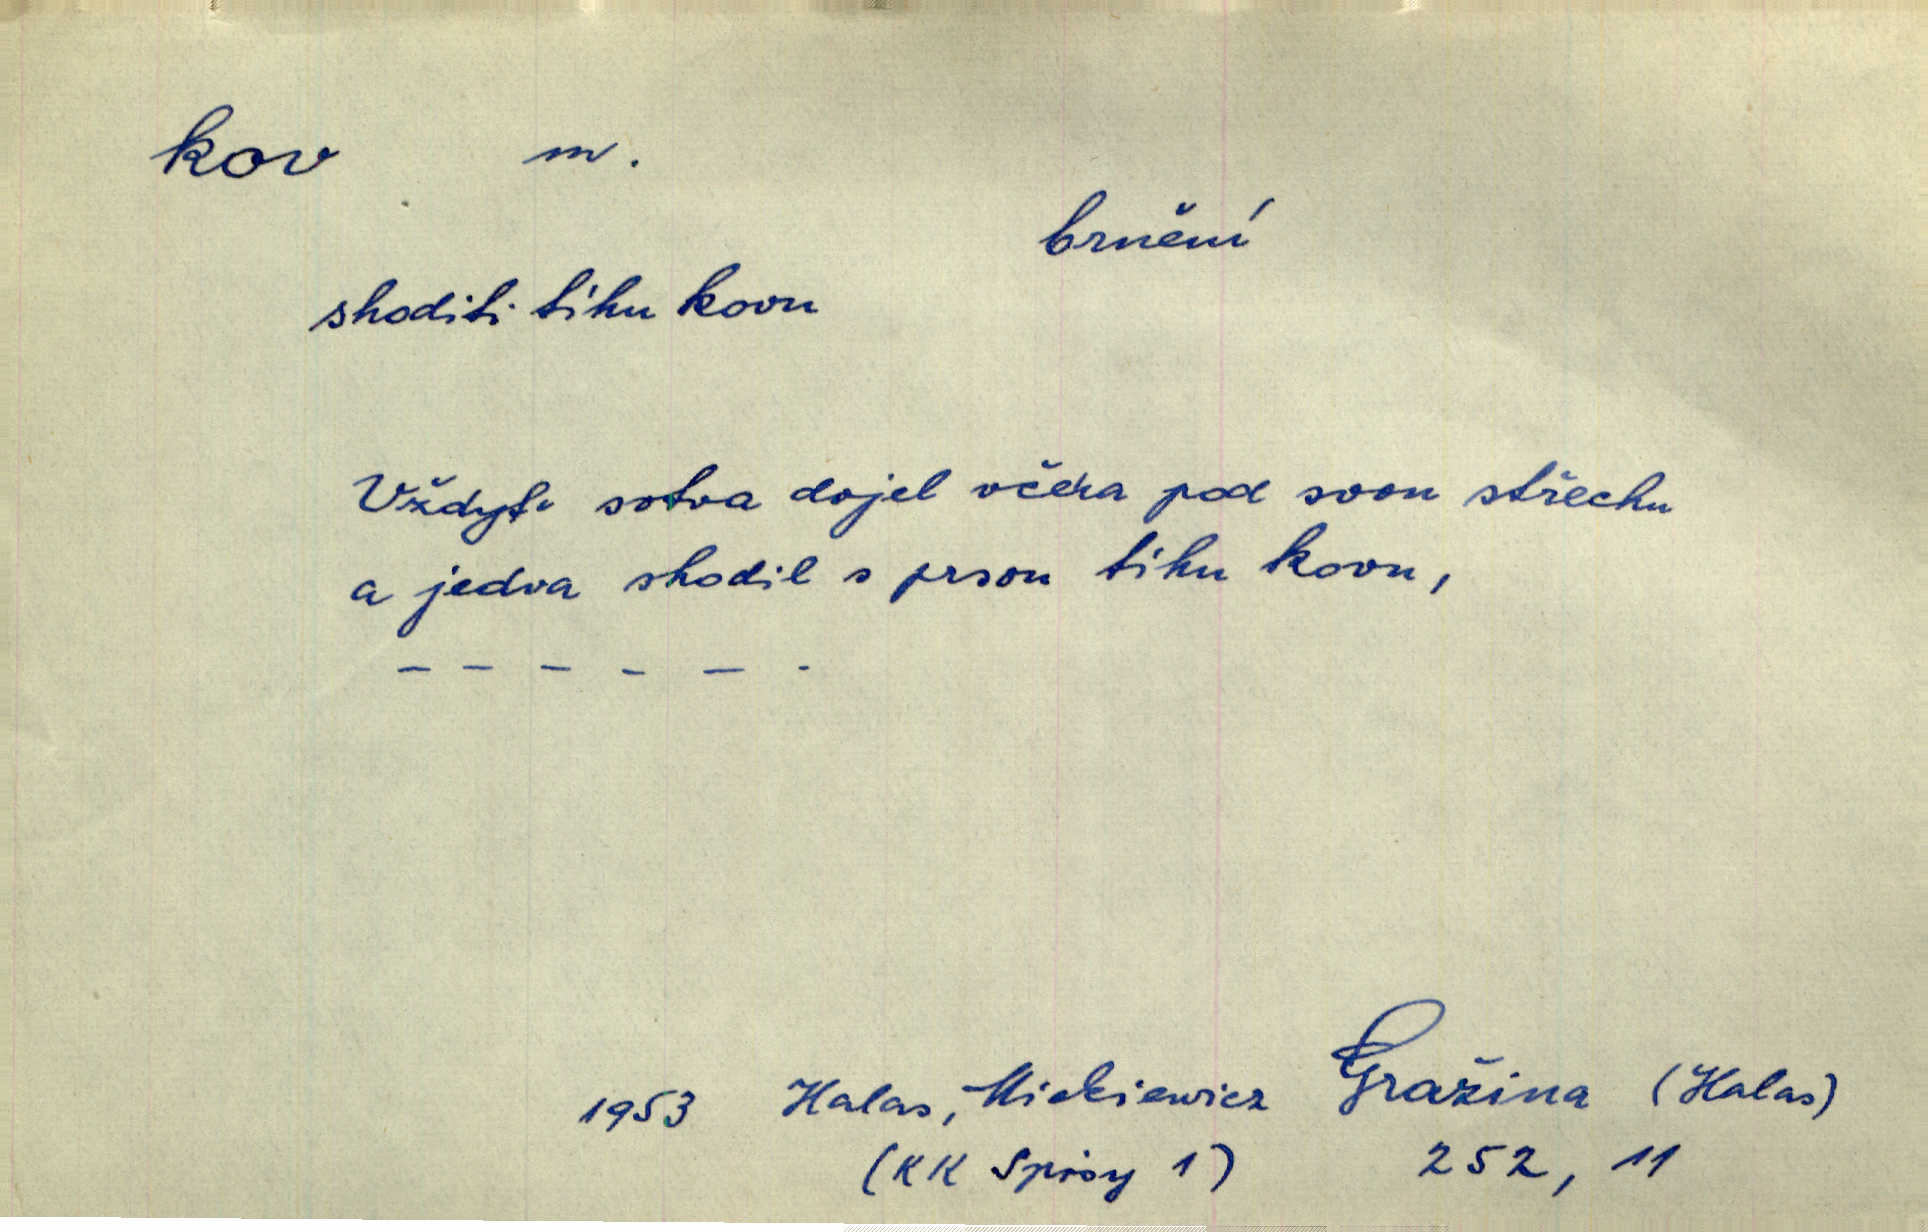 kov m.
brnění
shoditi tíhu kovu
Vždyť sotva dojel včera pod svou střechu
a jedva shodil s prsou tíhu kovu,
– – – – – -
1953 Halas, Mickiewicz Gražina (Halas)
(KK Spisy 1) 252, 11